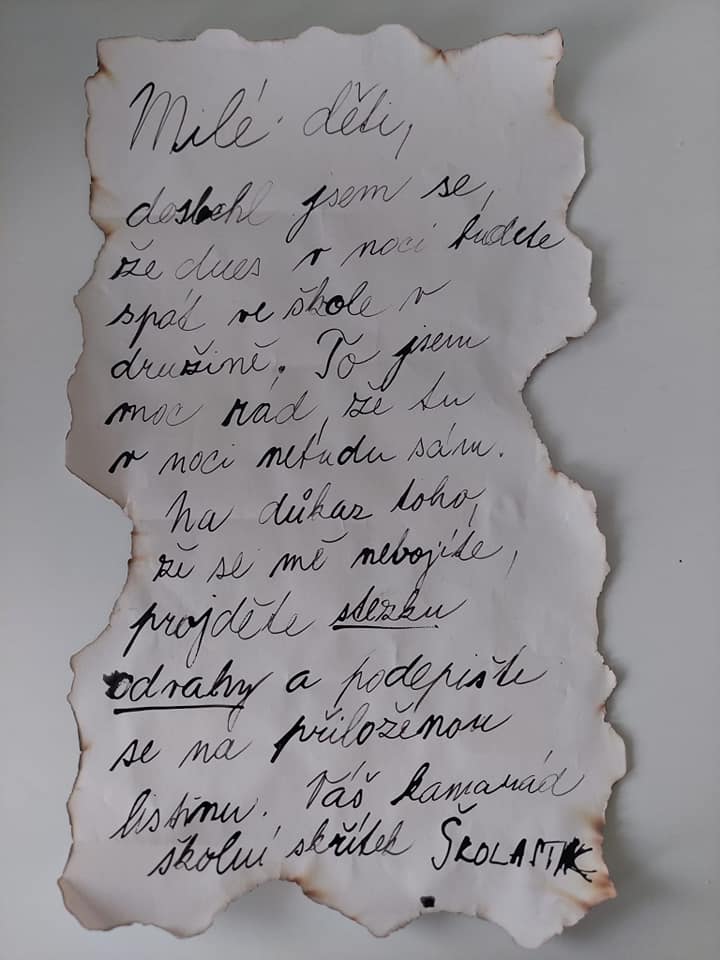 Milé děti,
doslechl jsem se,
že dnes v noci budete
spát ve škole v
družině. To jsem
moc rád, že tu
v noci nebudu sám.
Na důkaz toho,
že se mě nebojíte,
projděte stezku
odvahy a podepište
se na přiloženou
listinu. Váš kamarád
školní skřítek ŠKOLASTIK